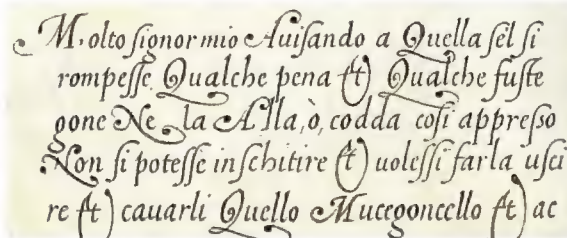 M. olto ſignor mio Auiſando a Quella ſel ſi
rompeſſe. Qualche pena &) Qualche fuſte
gone Ne la Alla, ò, codda coſi appreſſo
Non ſi poteſſe inſchitire &) uoleſſi farla uſci
re &) cauarli Quello Mucegoncello &) ac